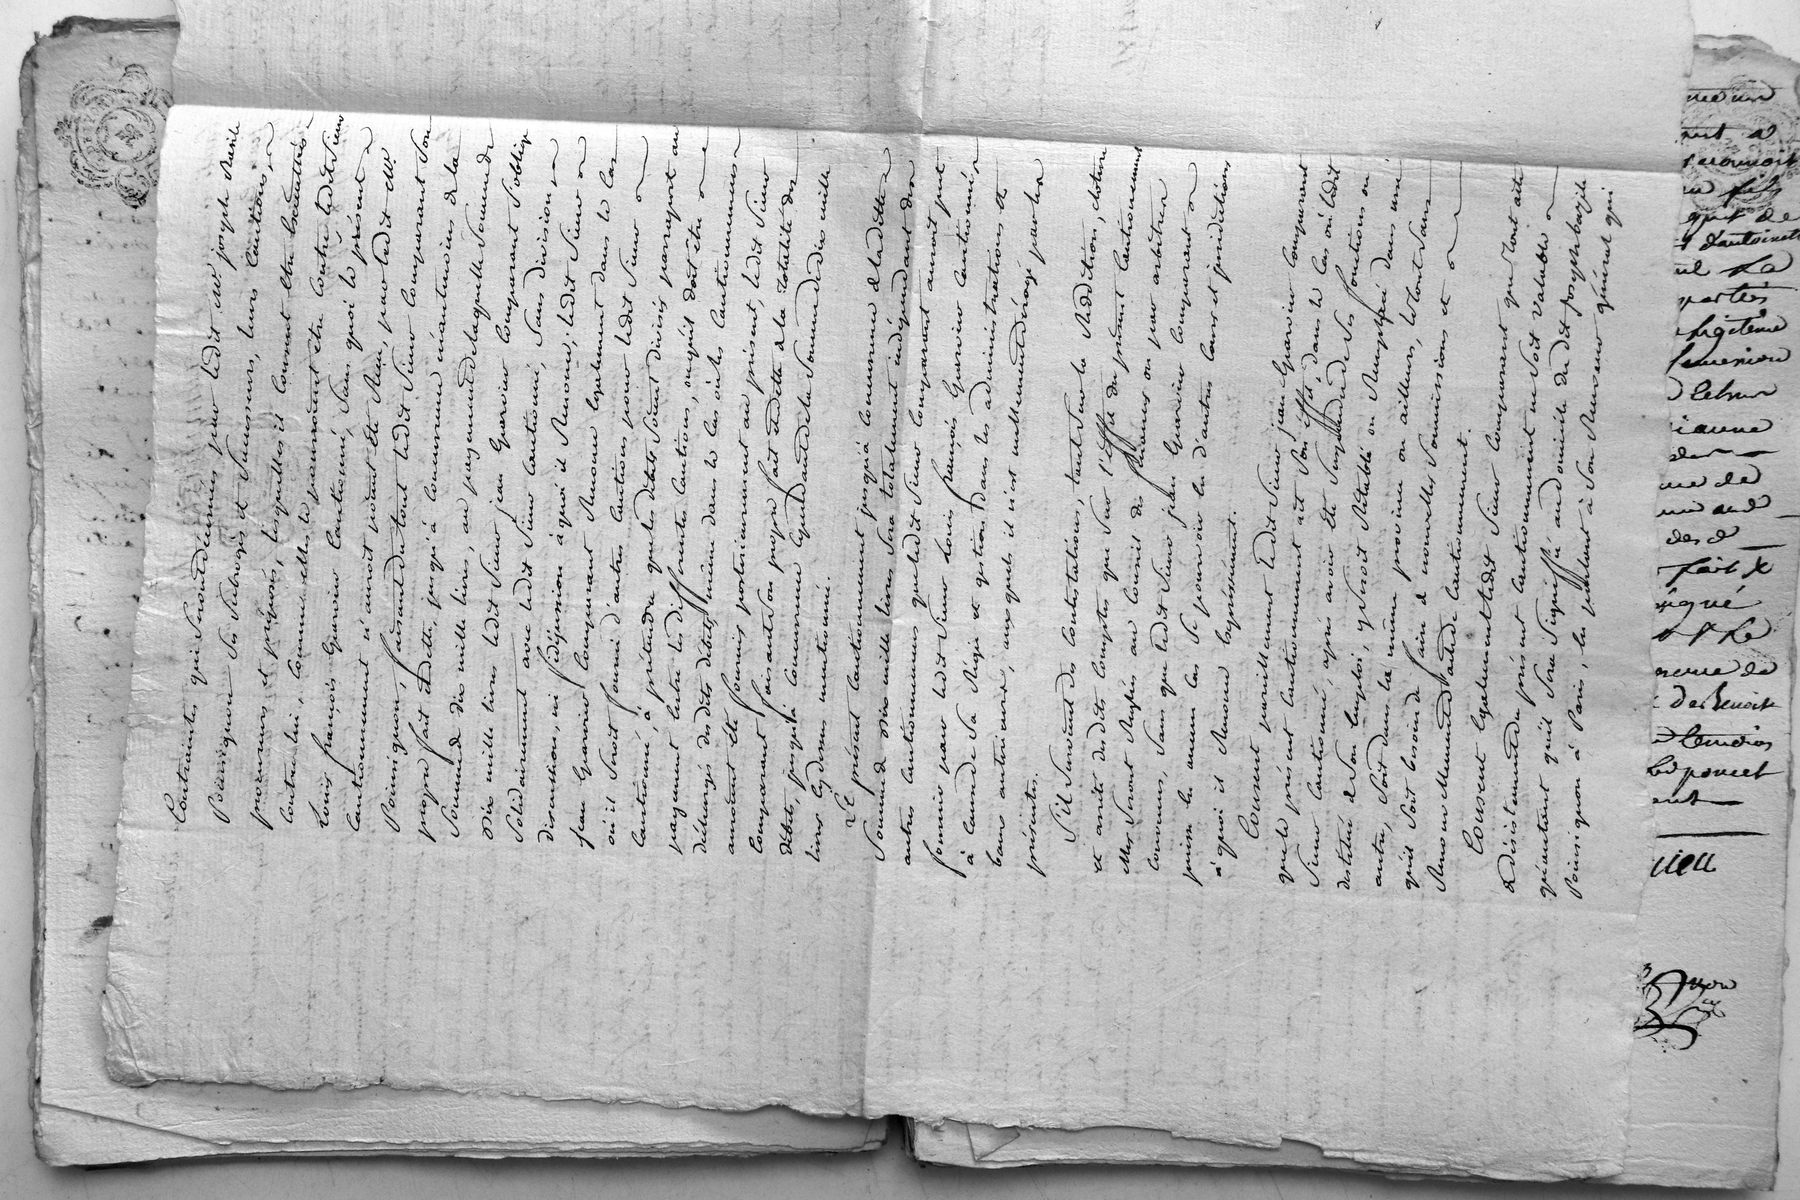 Contraintes qui seront décernées par ledit Me joseph Basile
Poinsignon Ses Subrogés et Successeurs, leurs Cautions
procureurs et préposés, lesquelles il Consent être Executées
Contre lui, Comme elles le pourroient être Contre ledit Sieur
Louis françois Guerrier Cautionné, Sans quoi le présent
Cautionnement n'auroit point été Reçu, par ledit Me
Poinsignon, faisant du tout ledit Sieur Comparant Son
propre fait et dette, jusqu'à Concurrence néantmoins de la
Somme de dix mille livres, au payement de laquelle Somme de
dix mille livres ledit Sieur jean Guerrier Comparant s'oblige
Solidairement avec ledit Sieur Cautionné, Sans division
discution, ni fidéjusion à quoi il Renonce; ledit Sieur
jean Guerrier Comparant Renonce Egalement dans le Cas
où il Seroit fourni d'autres Cautions pour ledit Sieur
Cautionné, à prétendre que les débets Soient divisés par rapport au
payement Entre les différentes Cautions, ou qu'il doit être
déchargé des dits débets, même dans le Cas où les Cautionnemens
auroient été fournis postérieurement au présent, ledit Sieur
Comparant faisant Son propre fait et dette de la totalité des
débets, jusqu'à Concurrence Cependant de la Somme de dix mille
livres Cydessus mentionné.
Le présent Cautionnement jusqu'à Concurrence de ladette
Somme de dix mille livres Sera totalement indépendant des
autres Cautionnemens que ledit Sieur Comparant auroit peut
fournir pour ledit Sieur Louis françois Guerrier Cautionné
à Cause de Sa Régie et gestion dans les administrations et
baux antérieurs, auxquels il n'est nullement dérogé par les
présentes.
S'il Survient des Contestations, tant Sur la Reddition, cloture
et arrêté des dits Comptes que Sur l'Effet du présent Cautionnement
elles Seront Reglées au Conseil des fermes ou par arbitres
Convenus, Sans que ledit Sieur jean Guerrier Comparant
puisse En aucun Cas Se pourvoir En d'autres Cours et juridictions
à quoi il Renonce Expressément.
Consent pareillement ledit Sieur jean Guerrier Comparant
que le présent Cautionnement ait Son Effet dans le Cas où ledit
Sieur Cautionné, après avoir été Suspendu de Ses fonctions ou
destitué de Son Emploi, y Seroit Rétabli ou Remplacé dans un
autre, Soit dans la même province ou ailleurs, Et ce Sans
qu'il Soit besoin de faire de nouvelles Soumissions et
Renouvellement dudit Cautionnement.
Consent Egalement ledit Sieur Comparant que tout acte
de désistement du présent Cautionnement ne Soit valable
qu'autant qu'il Sera Signiffié au domicile dudit joseph bazile
Poinsignon à Paris, En parlant à Son Receveur général qui